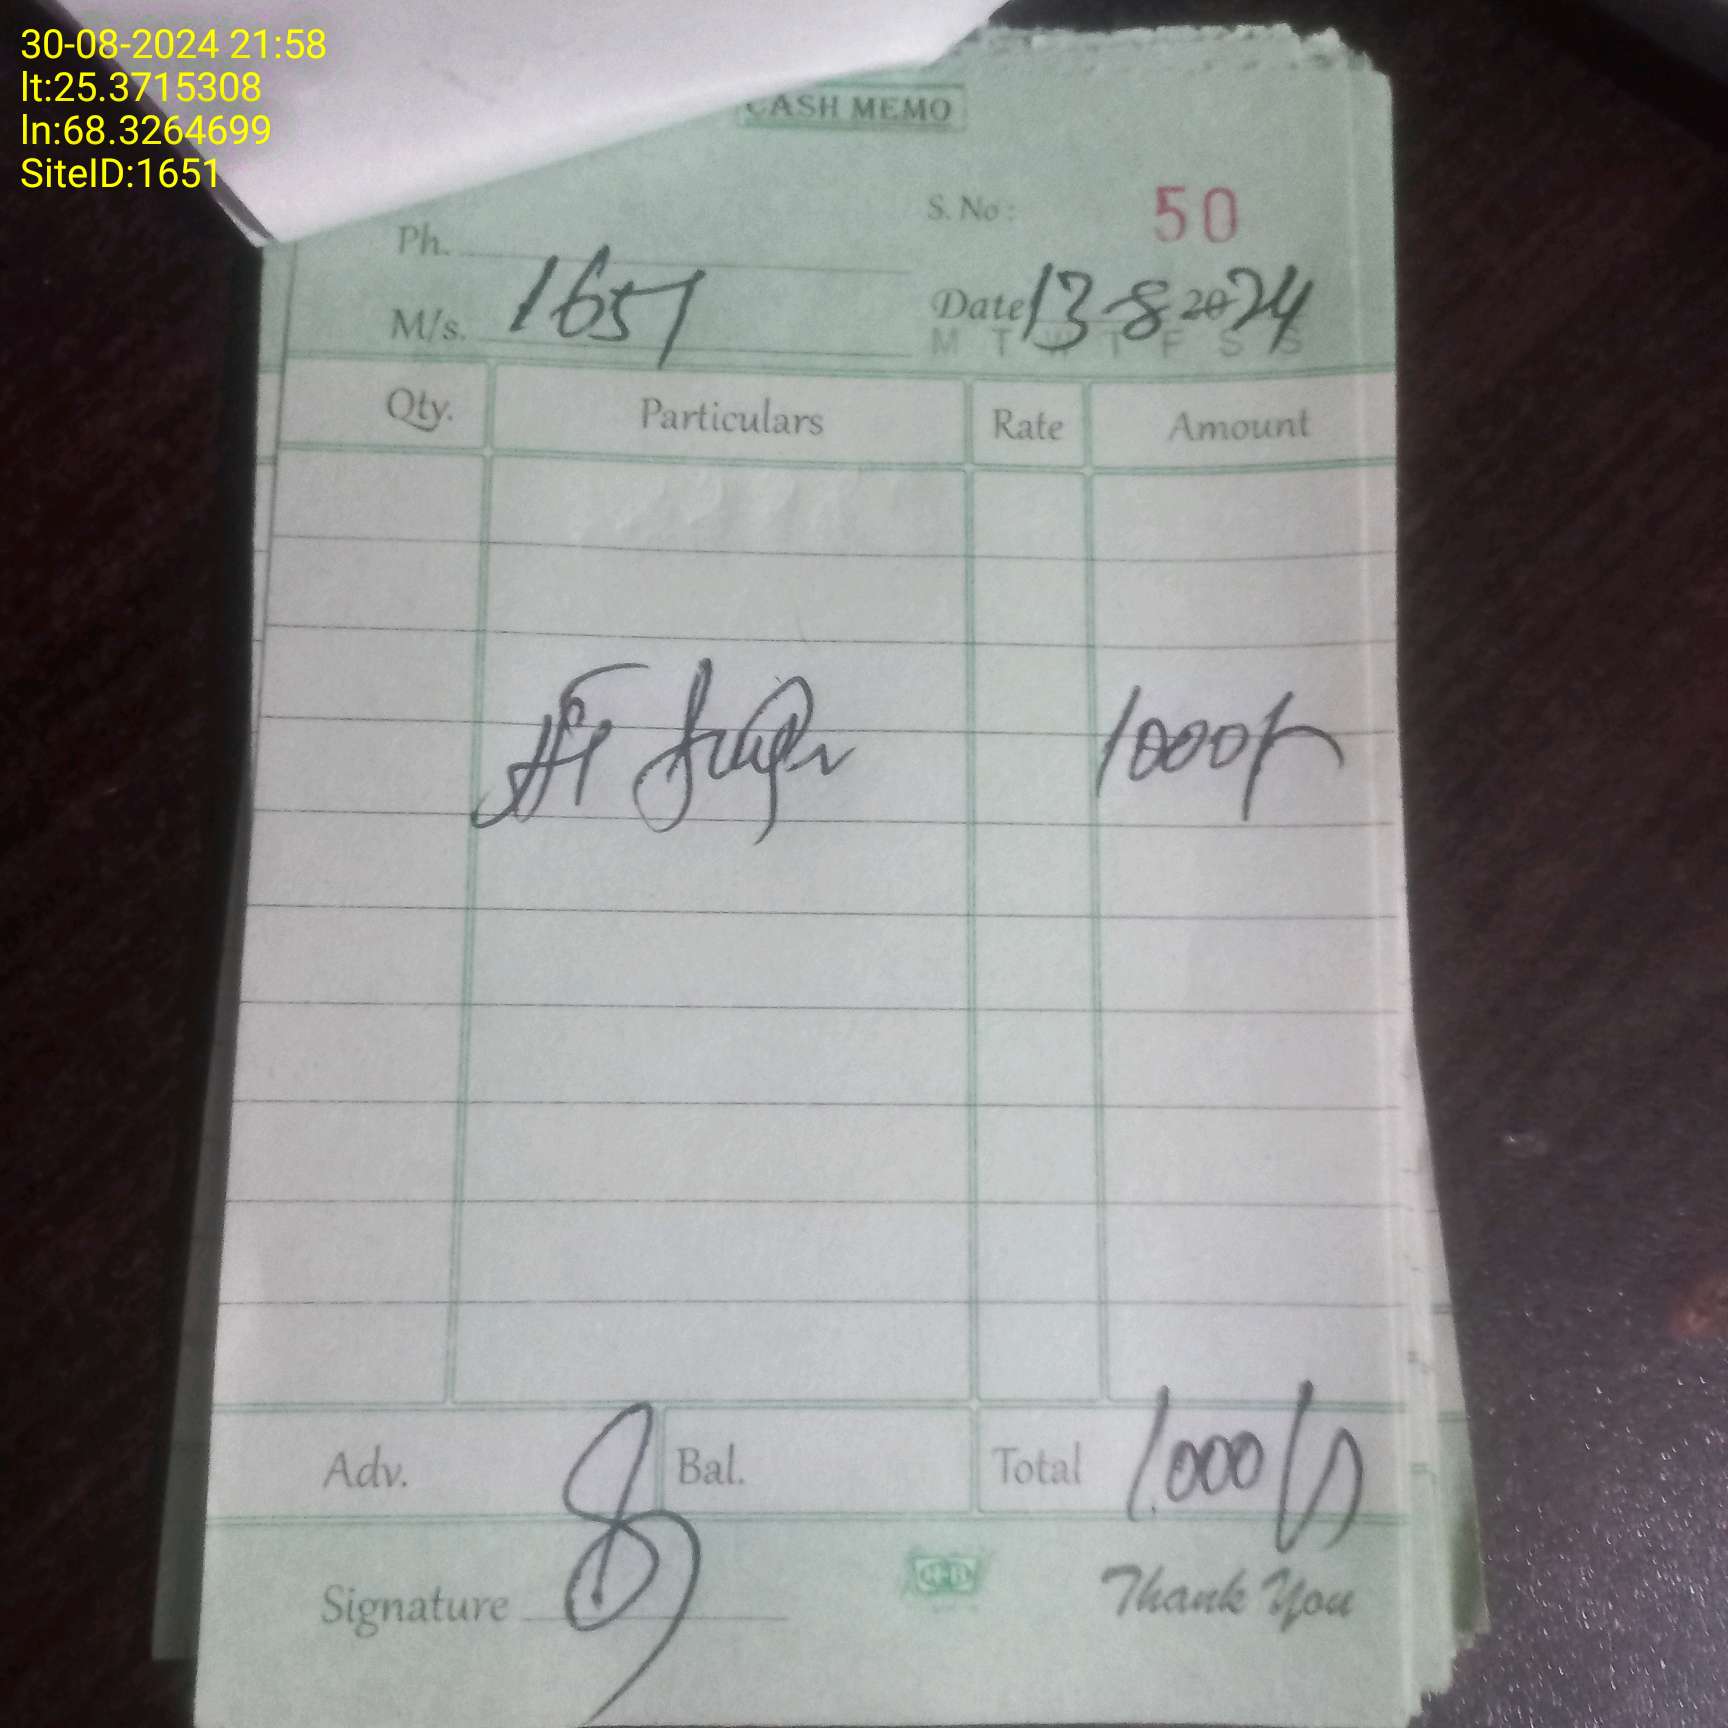 30-08-2024 21:58
lt:25.3715308
ln:68.3264699
SiteID:1651
CASH MEMO
S. No: 50
Ph.
M/s. 1651
Date 13-8-2024
M T W T F S S
Qty. Particulars Rate Amount
1000/-
Adv. Bal. Total 1000/-
Signature
Thank You